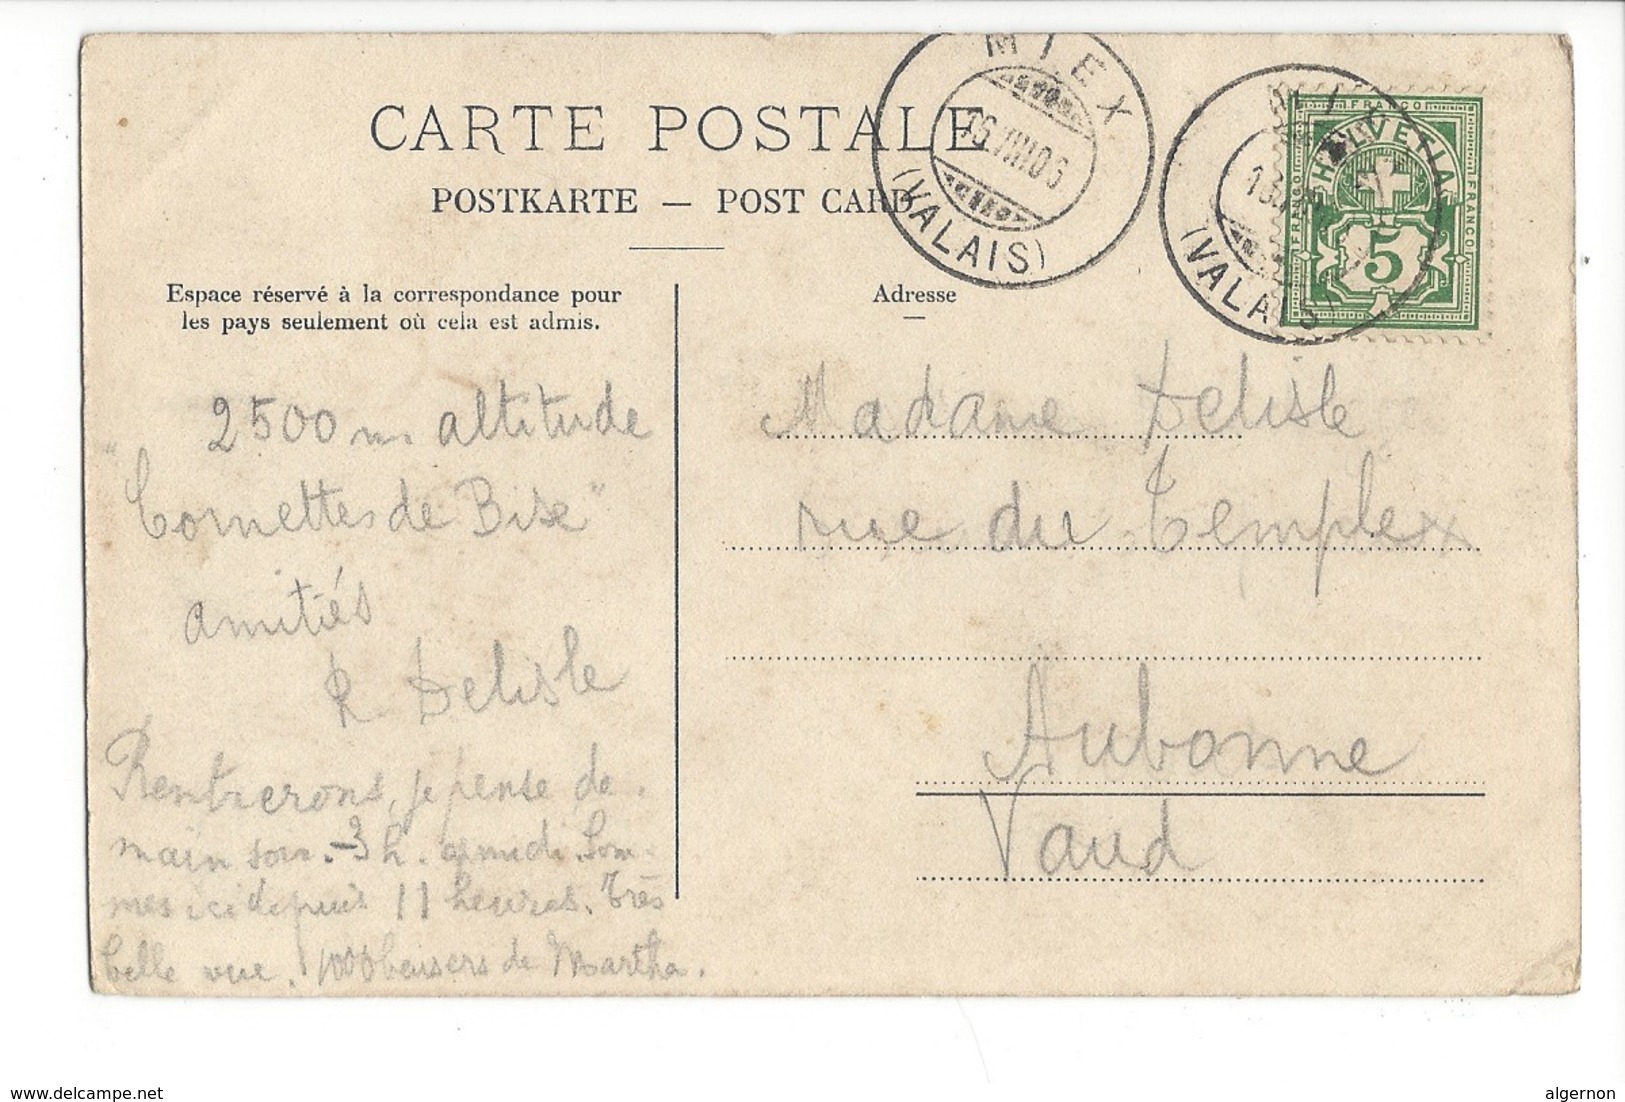 CARTE POSTALE
POSTKARTE — POST CARD
MIEX
(VALAIS)
(VALAIS)
FRANCO
HELVETIA
FRANCO
FRANCO
5
Espace réservé à la correspondance pour
les pays seulement où cela est admis.
Adresse
2500 m. altitude
"Cornettes de Bise"
amitiés
R. Delisle
Rentrerons, je pense de-
main soir. - 3 h. apmidi. Som-
mes ici depuis 11 heures. Très
belle vue. 1000 baisers de Martha.
Madame Delisle
rue du Temple
Aubonne
Vaud
www.delcampe.net
algernon